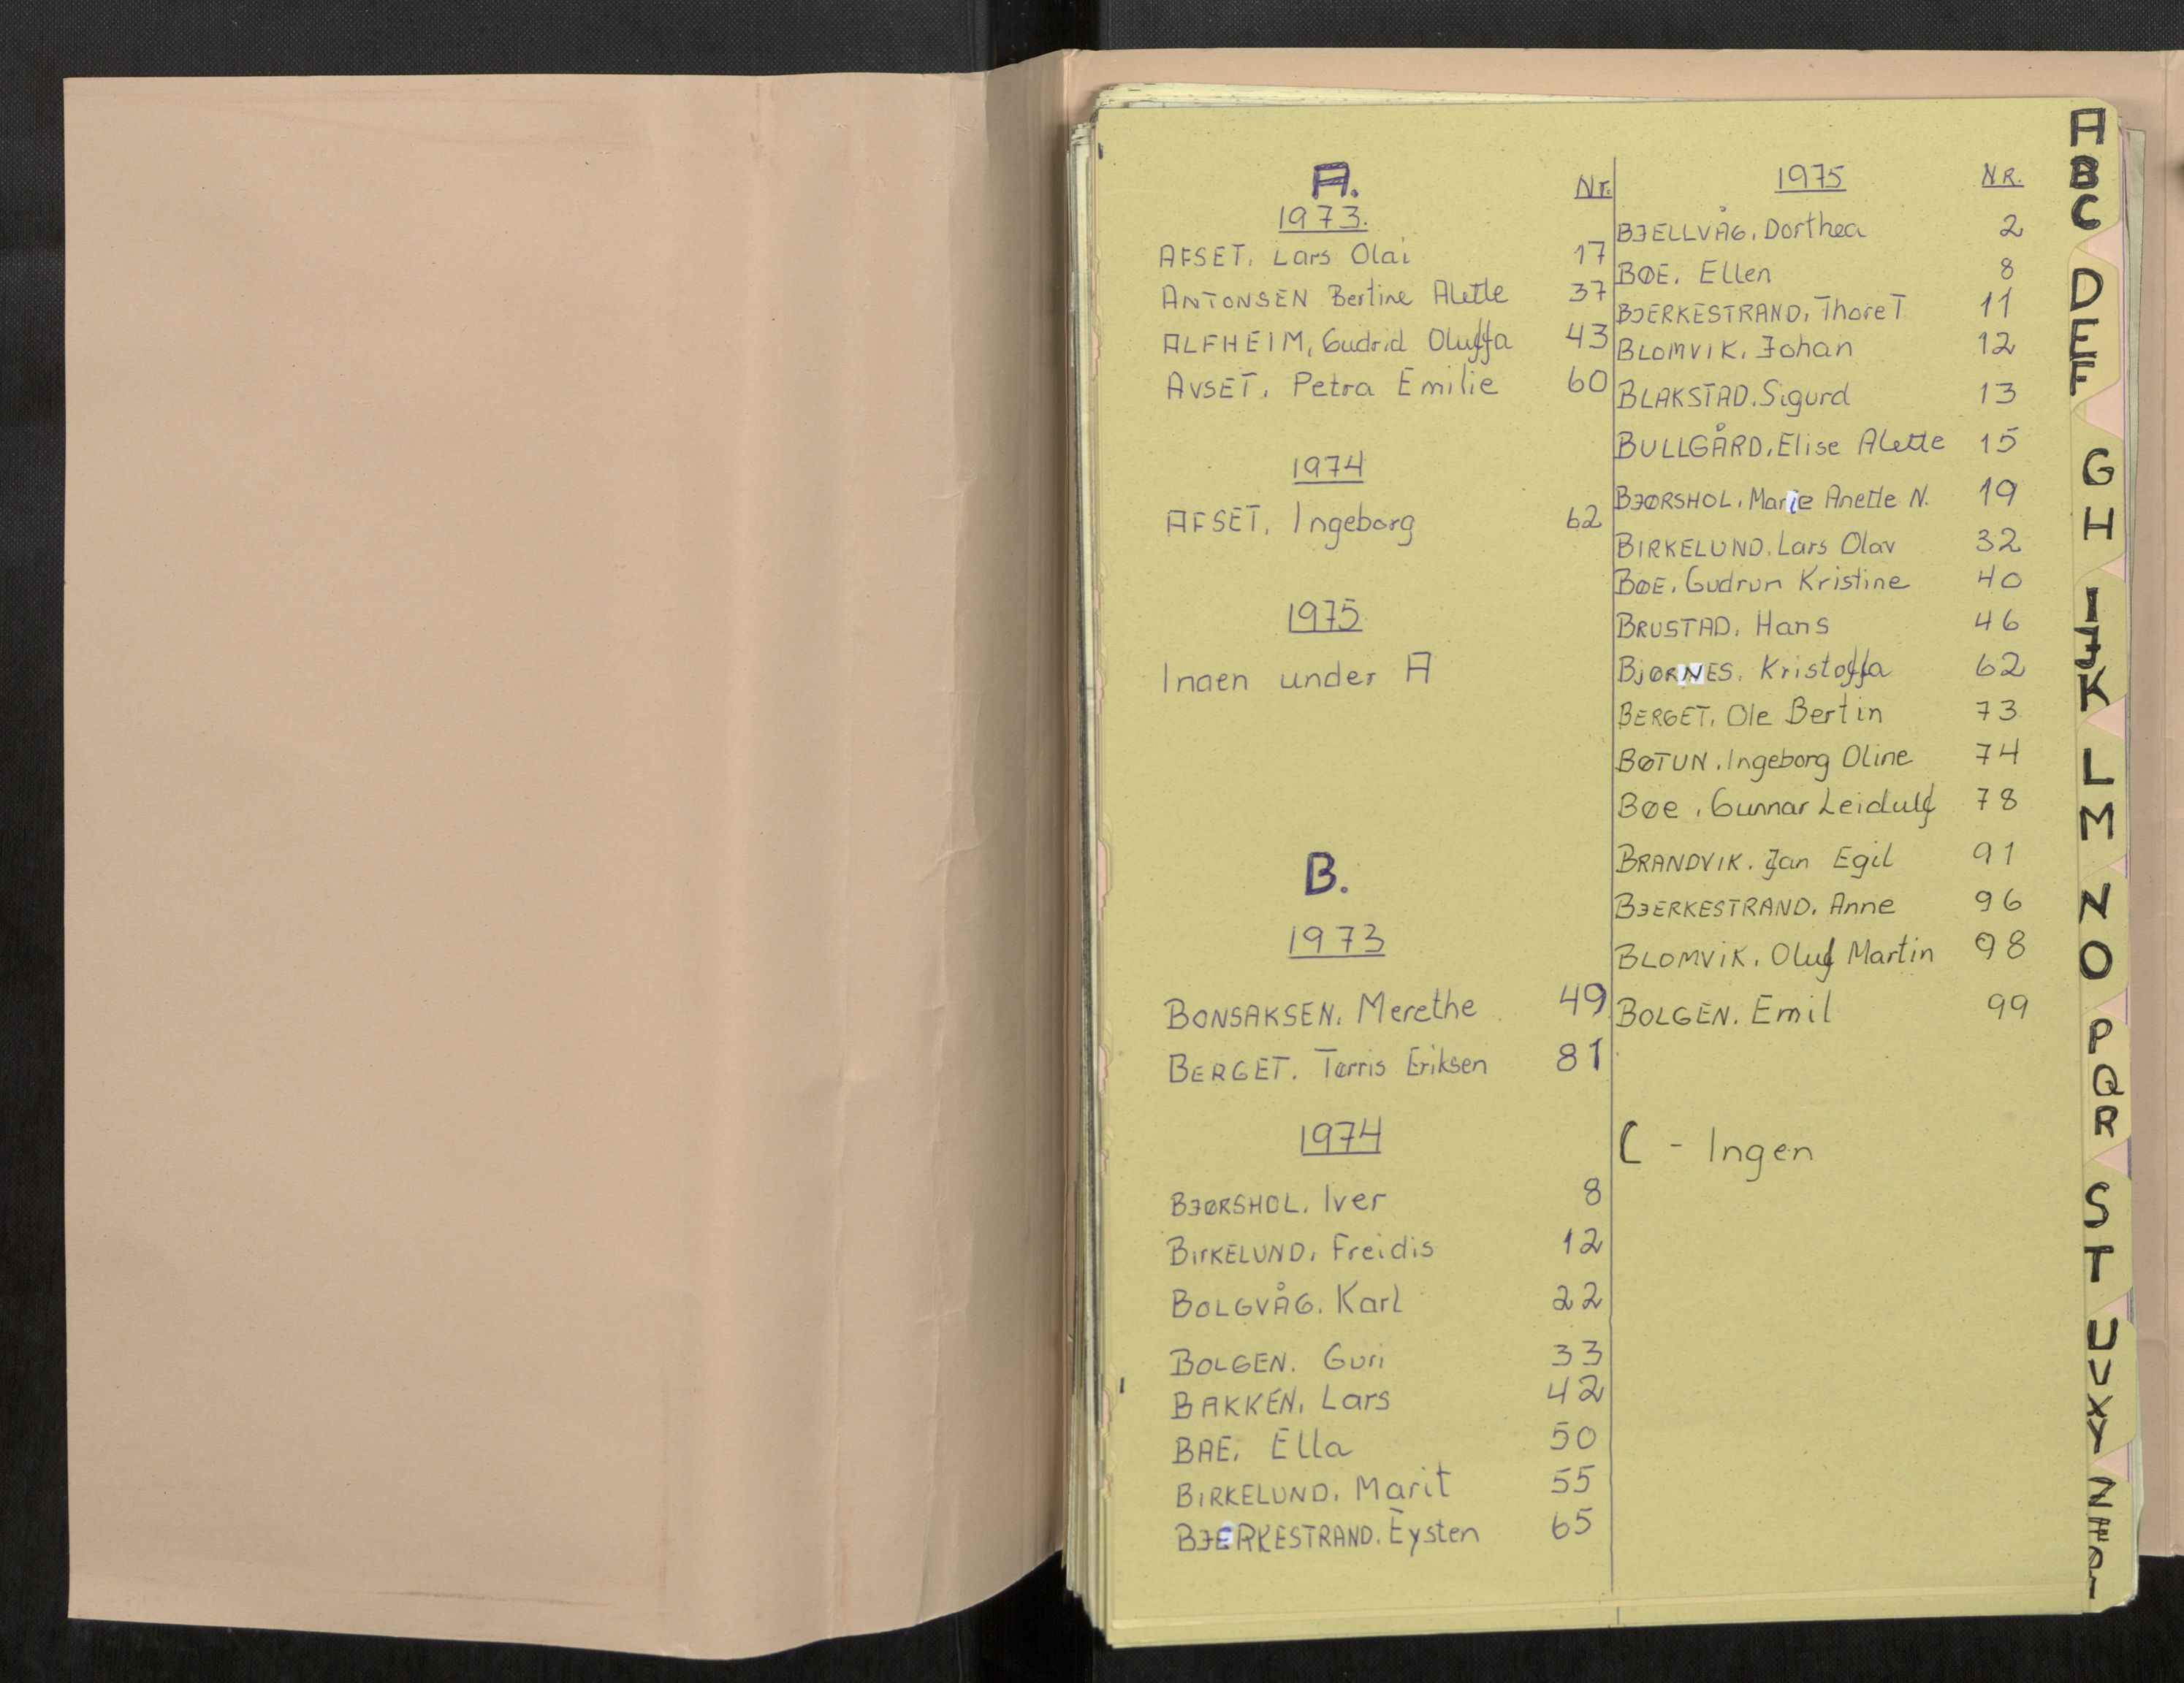 A. Nr.
1973.
AFSET. Lars Olai 17
ANTONSEN Bertine Alette 37
ALFHEIM, Gudrid Oluffa 43
AVSET. Petra Emilie 60
1974
AFSET. Ingeborg 62
1975
Ingen under A
B.
1973
BONSAKSEN. Merethe 49
BERGET. Tørris Eriksen 81
1974
BJØRSHOL. Iver 8
BIRKELUND. Freidis 12
BOLGVÅG. Karl 22
BOLGEN. Guri 33
BAKKEN, Lars 42
BAE, Ella 50
BIRKELUND. Marit 55
BJERKESTRAND. Eysten 65
1975 NR.
BJELLVÅG. Dorthea 2
BØE. Ellen 8
BJERKESTRAND. Thore T 11
BLOMVIK. Johan 12
BLAKSTAD. Sigurd 13
BULLGÅRD. Elise Alette 15
BJØRSHOL. Marie Anette N. 19
BIRKELUND. Lars Olav 32
BØE. Gudrun Kristine 40
BRUSTAD. Hans 46
BJØRNES. Kristoffa 62
BERGET. Ole Bertin 73
BØTUN. Ingeborg Oline 74
BØE. Gunnar Leidulf 78
BRANDVIK. Jan Egil 91
BJERKESTRAND. Anne 96
BLOMVIK. Oluf Martin 98
BOLGEN. Emil 99
C - Ingen
A
B
C
D
E
F
G
H
I
J
K
L
M
N
O
P
Q
R
S
T
U
V
X
Y
Z
Æ
Ø